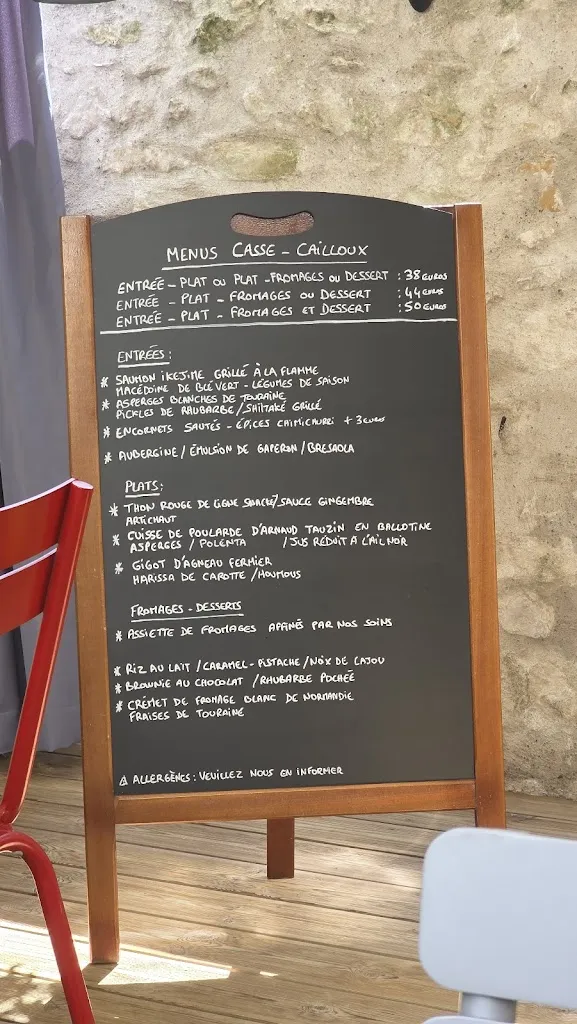 MENUS CASSE - CAILLOUX
ENTRÉE - PLAT OU PLAT - FROMAGES OU DESSERT : 38 EUROS
ENTRÉE - PLAT - FROMAGES OU DESSERT : 44 EUROS
ENTRÉE - PLAT - FROMAGES ET DESSERT : 50 EUROS
ENTRÉES :
* SAUMON IKEJIME GRILLÉ À LA FLAMME
MACÉDOINE DE BLÉ VERT - LÉGUMES DE SAISON
* ASPERGES BLANCHES DE TOURAINE
PICKLES DE RHUBARBE / SHIITAKÉ GRILLÉ
* ENCORNETS SAUTÉS - ÉPICES CHIMICHURRI + 3 EUROS
* AUBERGINE / ÉMULSION DE GAPERON / BRESAOLA
PLATS :
* THON ROUGE DE LIGNE SNACKÉ / SAUCE GINGEMBRE
ARTICHAUT
* CUISSE DE POULARDE D'ARNAUD TAUZIN EN BALLOTINE
ASPERGES / POLENTA / JUS RÉDUIT À L'AIL NOIR
* GIGOT D'AGNEAU FERMIER
HARISSA DE CAROTTE / HOUMOUS
FROMAGES - DESSERTS
* ASSIETTE DE FROMAGES AFFINÉS PAR NOS SOINS
* RIZ AU LAIT / CARAMEL - PISTACHE / NOIX DE CAJOU
* BROWNIE AU CHOCOLAT / RHUBARBE POCHÉE
* CRÉMET DE FROMAGE BLANC DE NORMANDIE
FRAISES DE TOURAINE
⚠ ALLERGÈNES : VEUILLEZ NOUS EN INFORMER